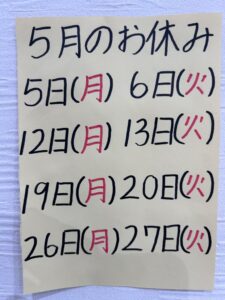 5月のお休み
5日(月) 6日(火)
12日(月) 13日(火)
19日(月) 20日(火)
26日(月) 27日(火)